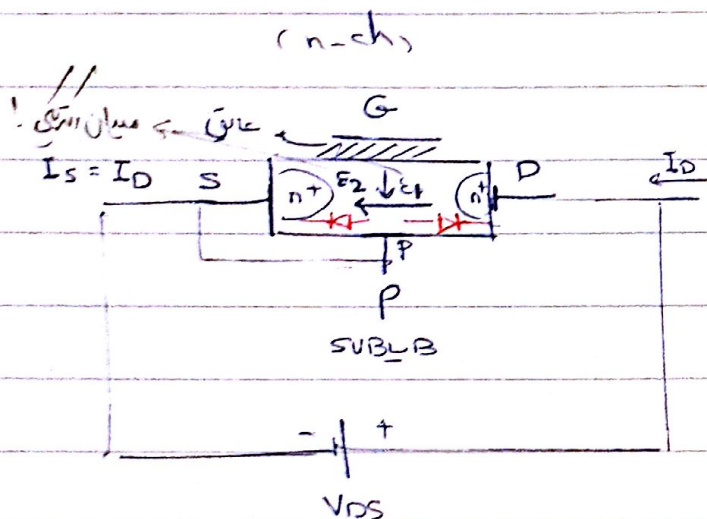 (n-ch)
G
عایق ← میدان الکتریکی!
I_S = I_D
S
n+
ε2
ε1
n+
D
I_D
P
P
SUB ـ B
- +
V_DS